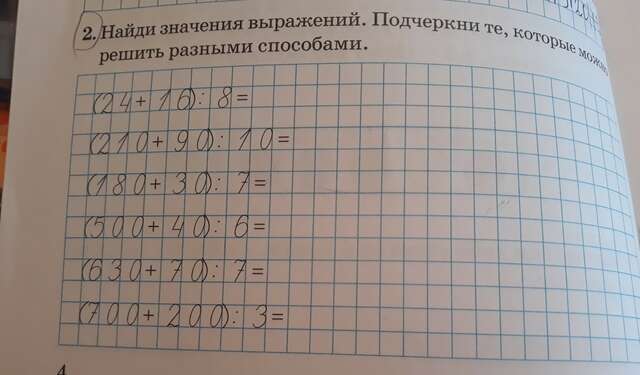 2. Найди значения выражений. Подчеркни те, которые можно
решить разными способами.
(24+16): 8=
(210+90): 10=
(180+30): 7=
(500+40): 6=
(630+70): 7=
(700+200): 3=